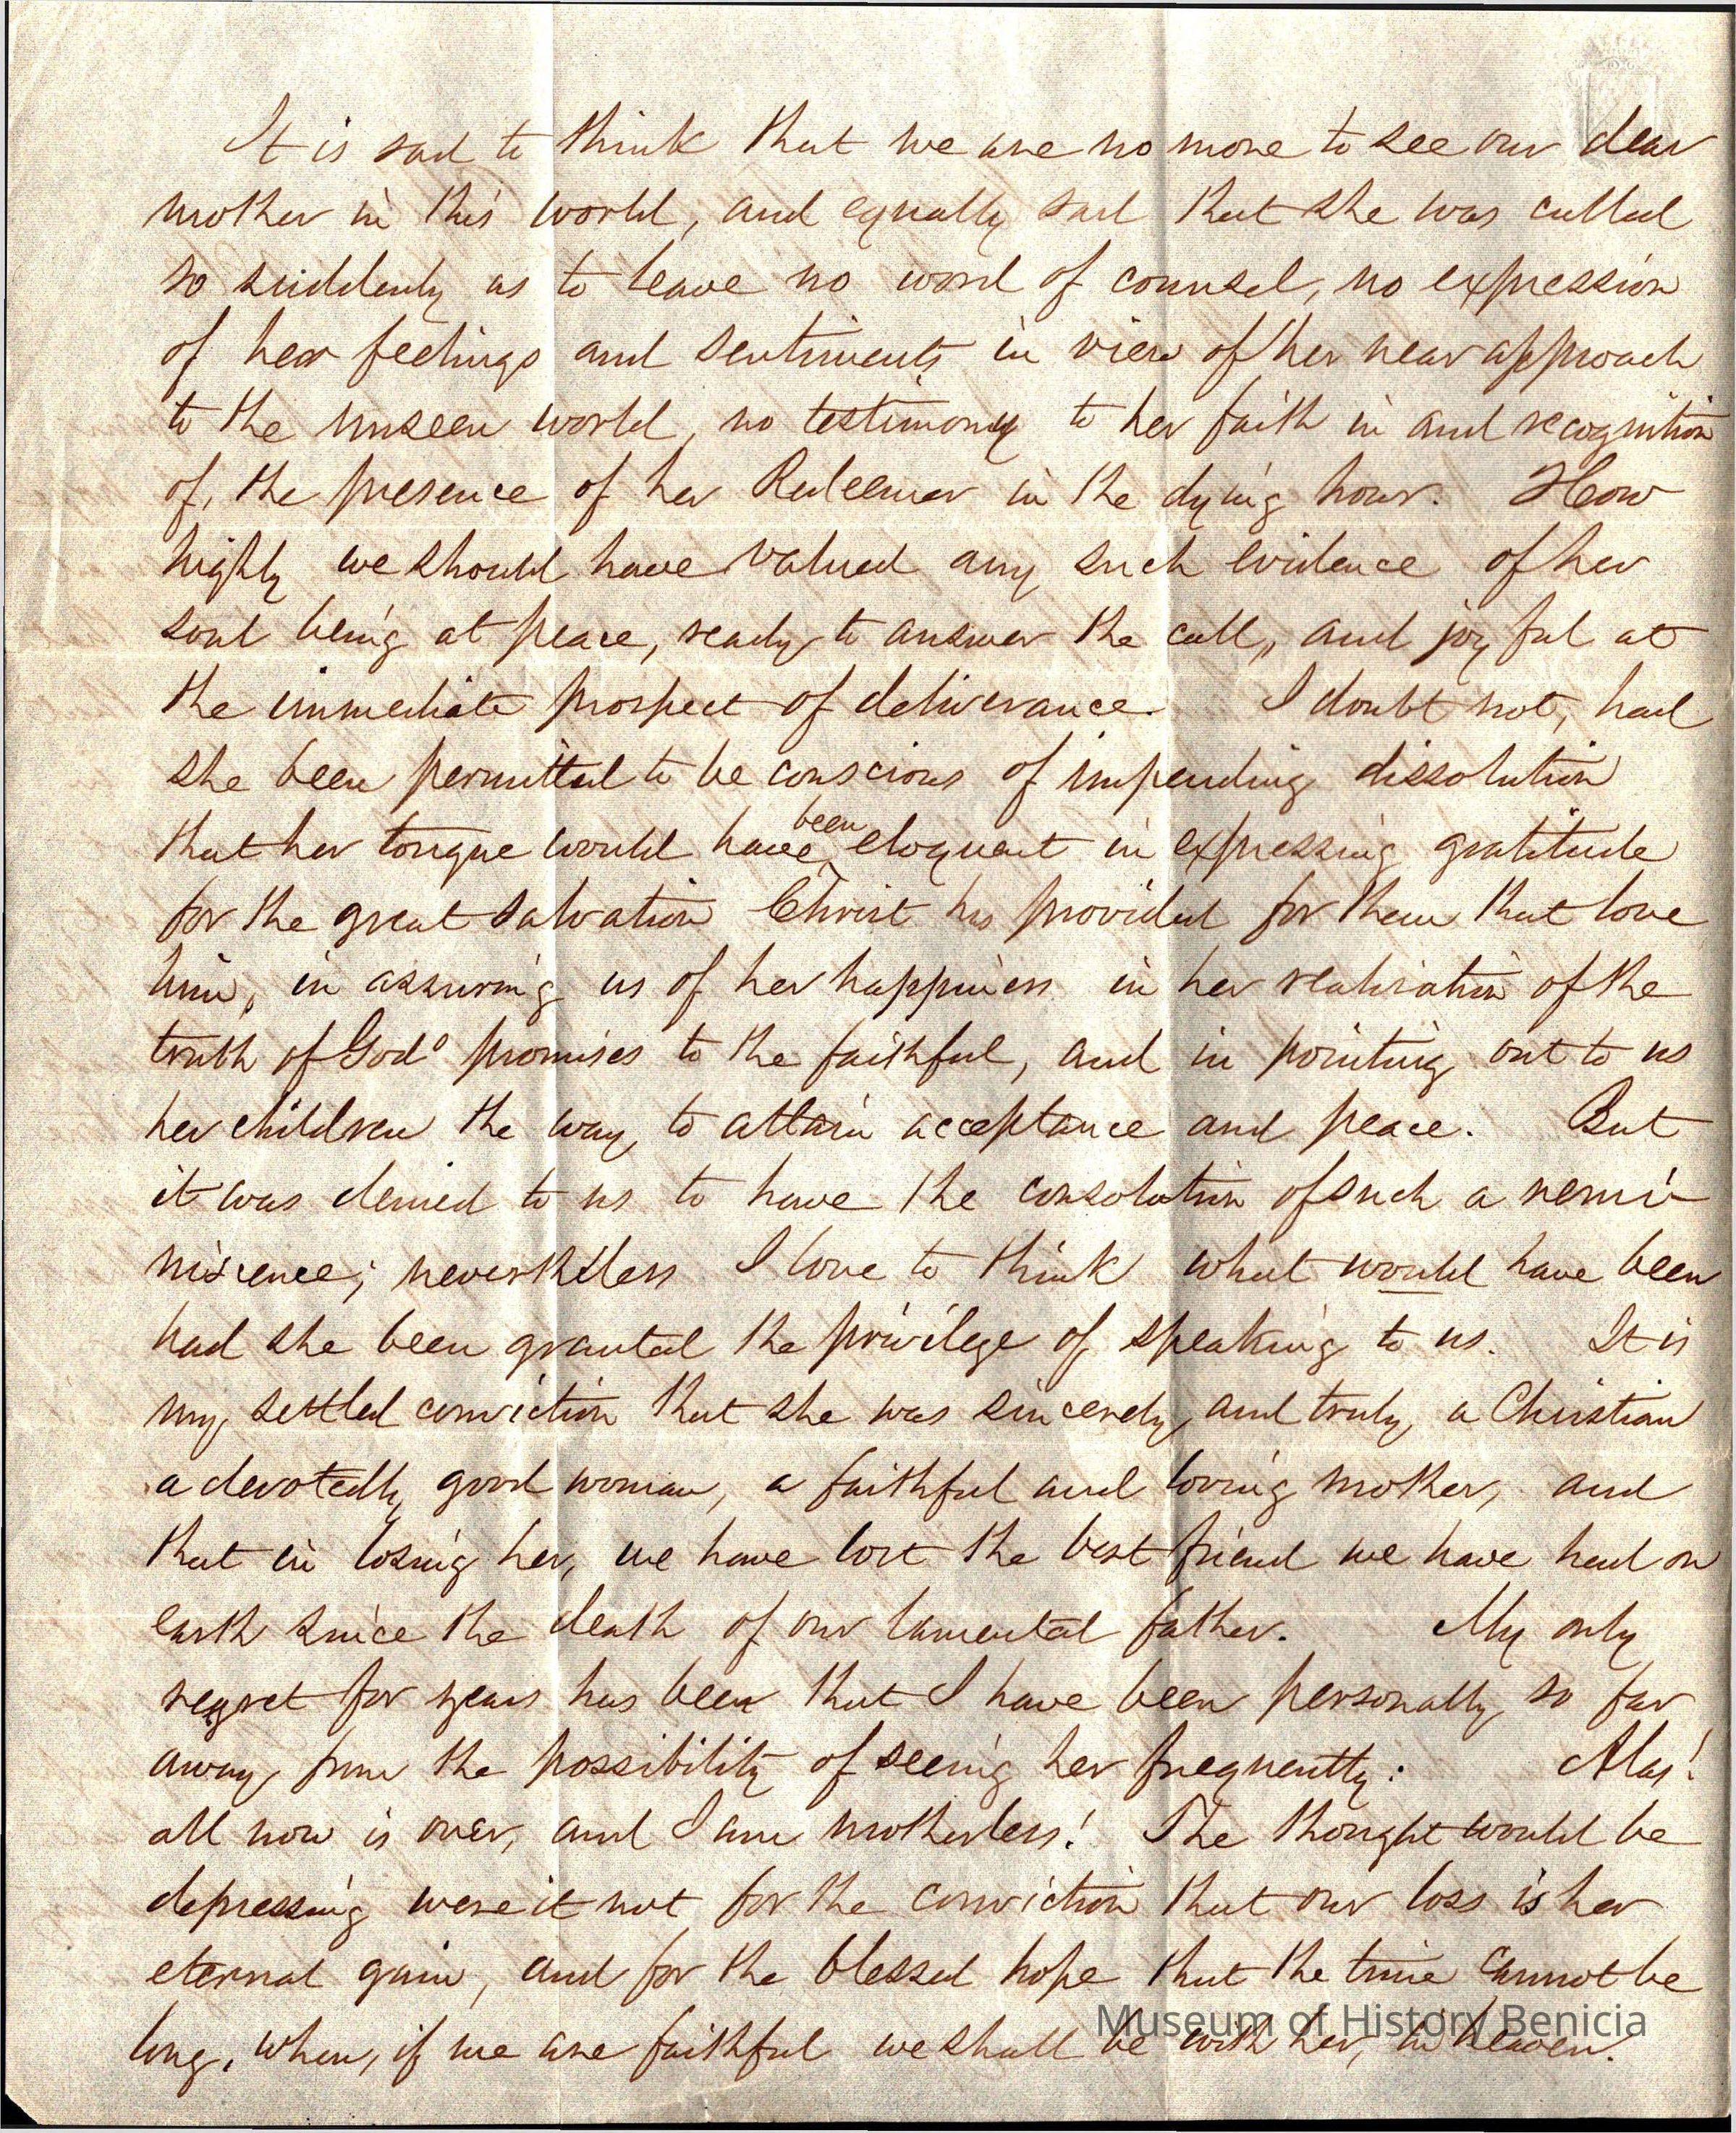 It is sad to think that we are no more to see our dear
mother in this world, and equally sad that she was called
so suddenly as to leave no word of counsel, no expression
of her feelings and sentiments in view of her near approach
to the unseen world, no testimony to her faith in and recognition
of, the presence of her Redeemer in the dying hour. How
highly we should have valued any such evidence of her
soul being at peace, ready to answer the call, and joyful at
the immediate prospect of deliverance. I doubt not, had
she been permitted to be conscious of impending dissolution
that her tongue would have been eloquent in expressing gratitude
for the great salvation Christ has provided for them that love
him, in assuring us of her happiness in her realization of the
truth of God's promises to the faithful, and in pointing out to us
her children the way to attain acceptance and peace. But
it was denied to us to have the consolation of such a remi-
niscence; nevertheless I love to think what would have been
had she been granted the privilege of speaking to us. It is
my settled conviction that she was sincerely and truly a Christian
a devotedly good woman, a faithful and loving mother, and
that in losing her, we have lost the best friend we have had on
earth since the death of our lamented father. My only
regret for years has been that I have been personally so far
away from the possibility of seeing her frequently: Alas!
all now is over, and I am motherless! The thought would be
depressing were it not for the conviction that our loss is her
eternal gain, and for the blessed hope that the time cannot be
long, when, if we are faithful we shall be with her, in heaven.
Museum of History Benicia